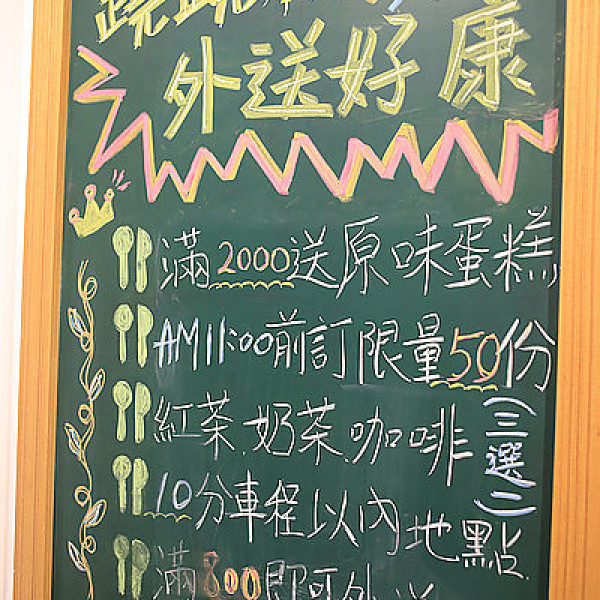 外送好康
滿2000送原味蛋糕
AM11:00前訂限量50份
紅茶.奶茶.咖啡(三選二)
10分車程以內地點
滿800即可外送